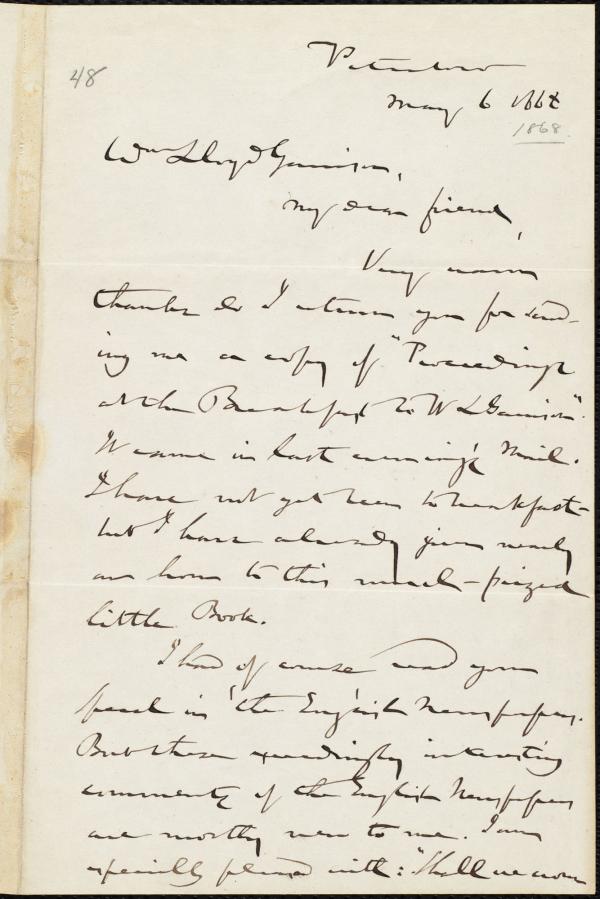 48
Peterboro
May 6 1868
1868.
Wm Lloyd Garrison,
My dear friend,
Very warm
thanks do I return you for send-
ing me a copy of "Proceedings
at the Breakfast to W L Garrison".
It came in last evening's Mail.
I have not yet been to breakfast -
but I have already given nearly
an hour to this much-prized
little Book.
I had of course read your
speech in the English Newspapers.
But these exceedingly interesting
comments of the English Newspapers
are mostly new to me. I am
especially pleased with: "Shall we